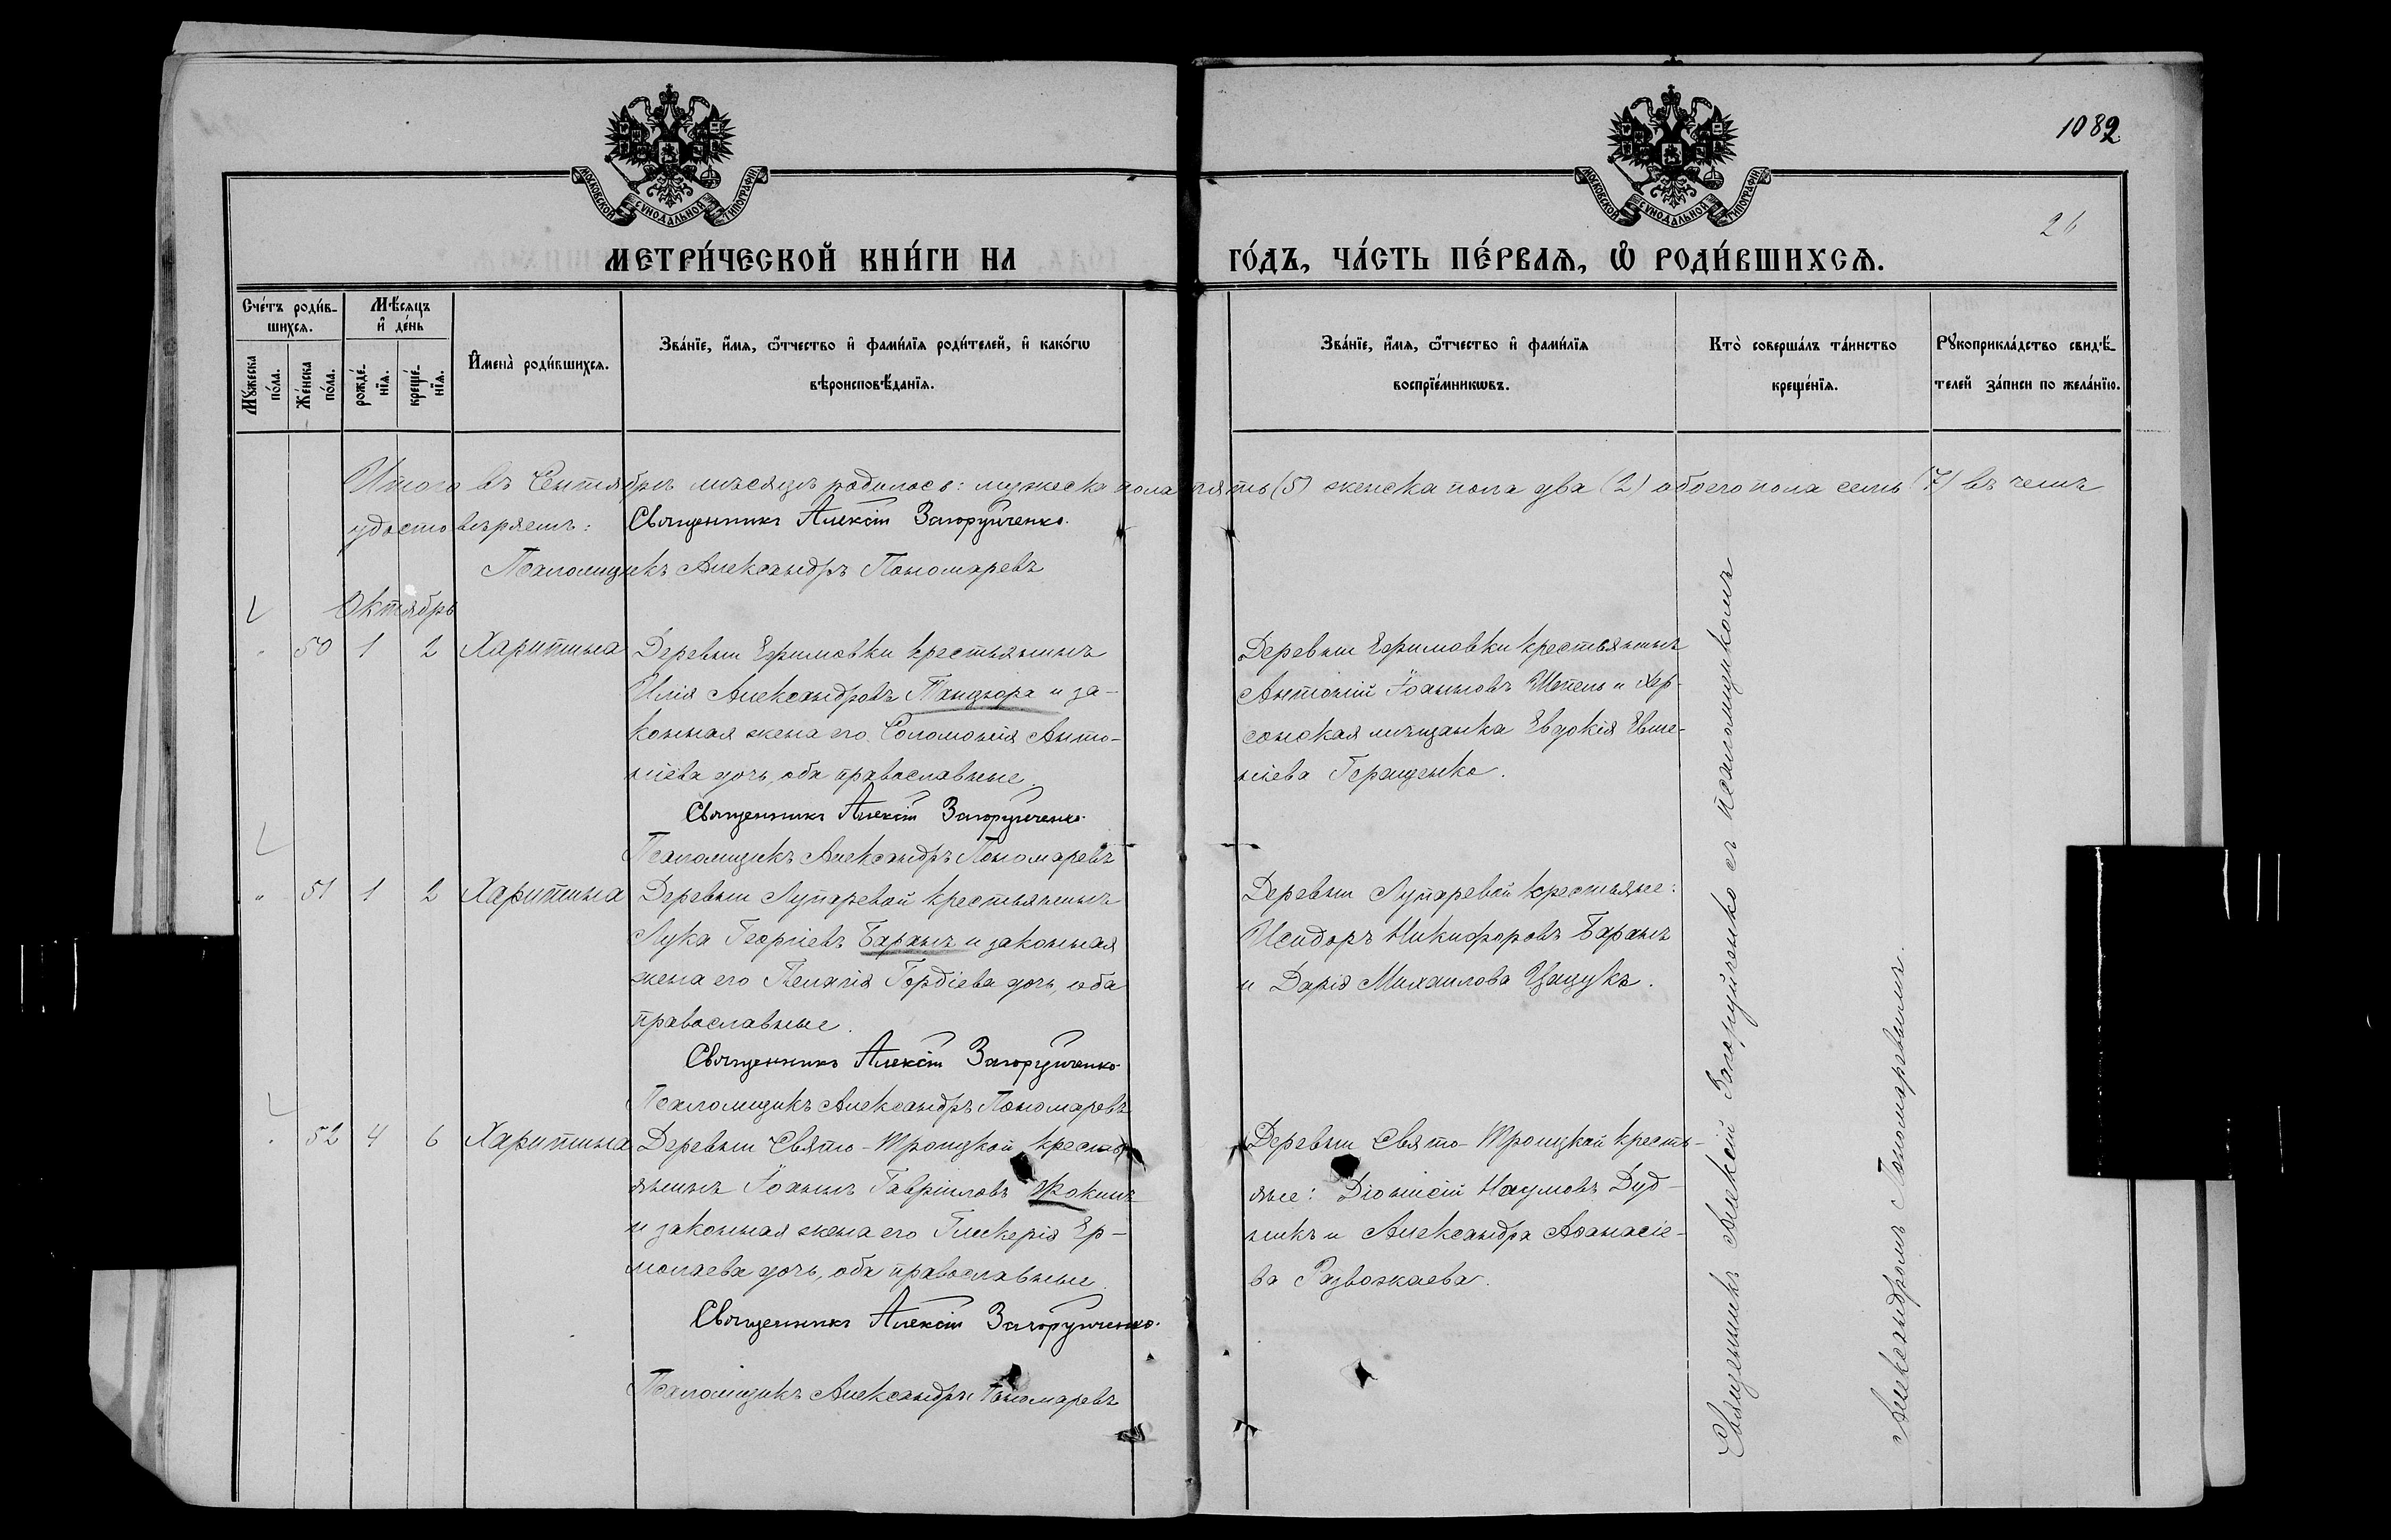 1082
26
МОСКОВСКОЙ СѴНОДАЛЬНОЙ ТИПОГРАФІИ
МОСКОВСКОЙ СѴНОДАЛЬНОЙ ТИПОГРАФІИ
МЕТРИ́ЧЕСКОЙ КНИ́ГИ НА ГО́ДЪ, ЧА́СТЬ ПЕ́РВАѦ, Ѽ РОДИ́ВШИХСѦ.
Сче́тъ роди́в-
шихсѧ.
Мꙋ́жеска по́ла.
Же́нска по́ла.
Мѣ́сѧцъ
и҆ де́нь
рожде́-нїѧ.
креще́-нїѧ.
И҆мена̀ роди́вшихсѧ.
Зва́нїе, и҆́мѧ, ѻ҆́тчество и҆ фами́лїѧ роди́телей, и҆ како́гѡ
вѣроисповѣ́данїѧ.
Зва́нїе, и҆́мѧ, ѻ҆́тчество и҆ фами́лїѧ
воспрїе́мникѡвъ.
Кто̀ соверша́лъ та́инство
креще́нїѧ.
Рꙋкоприкла́дство свидѣ́-
телей за́писи по жела́нїю.
Итого въ Сентябрѣ мѣсяцѣ родилось: мужеска пола пять (5) женска пола два (2) обоего пола семь (7) въ чемъ
удостовѣряемъ: Священникъ Алексій Загоруйченко.
Псаломщикъ Александръ Пономаревъ
Октябрь
" 50 1 2 Харитина Деревни Ефимовки крестьянинъ
Илія Александровъ Танцюра и за-
конная жена его Соломонія Анто-
ніева дочь, оба православные.
Священникъ Алексій Загоруйченко.
Псаломщикъ Александръ Пономаревъ
Деревни Ефимовки крестьянинъ
Антоній Іоанновъ Шепель и Хер-
сонская мѣщанка Евдокія Евме-
ніева Геращенко.
" 51 1 2 Харитина Деревни Лупаревой крестьянинъ
Лука Георгіевъ Баранъ и законная
жена его Пелагія Гордіева дочь, оба
православные.
Священникъ Алексій Загоруйченко.
Псаломщикъ Александръ Пономаревъ
Деревни Лупаревой крестьяне:
Исидоръ Никифоровъ Баранъ
и Дарія Михаилова Цацукъ.
" 52 4 6 Харитина Деревни Свято-Троицкой кресть-
янинъ Іоаннъ Гавріиловъ Фокинъ
и законная жена его Гликерія Ер-
молаева дочь, оба православные.
Священникъ Алексій Загоруйченко.
Псаломщикъ Александръ Пономаревъ
Деревни Свято-Троицкой кресть-
яне: Діонисій Наумовъ Дуд-
никъ и Александра Аѳанасіе-
ва Развожаева.
Священникъ Алексій Загоруйченко съ псаломщикомъ
Александромъ Пономаревымъ.